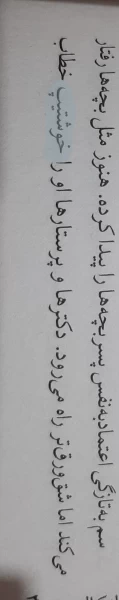 سم به‌تازگی اعتمادبه‌نفس پسربچه‌ها را پیدا کرده. هنوز مثل بچه‌ها رفتار
می‌کند اما شق‌ورق‌تر راه می‌رود. دکترها و پرستارها او را خوشتیپ خطاب